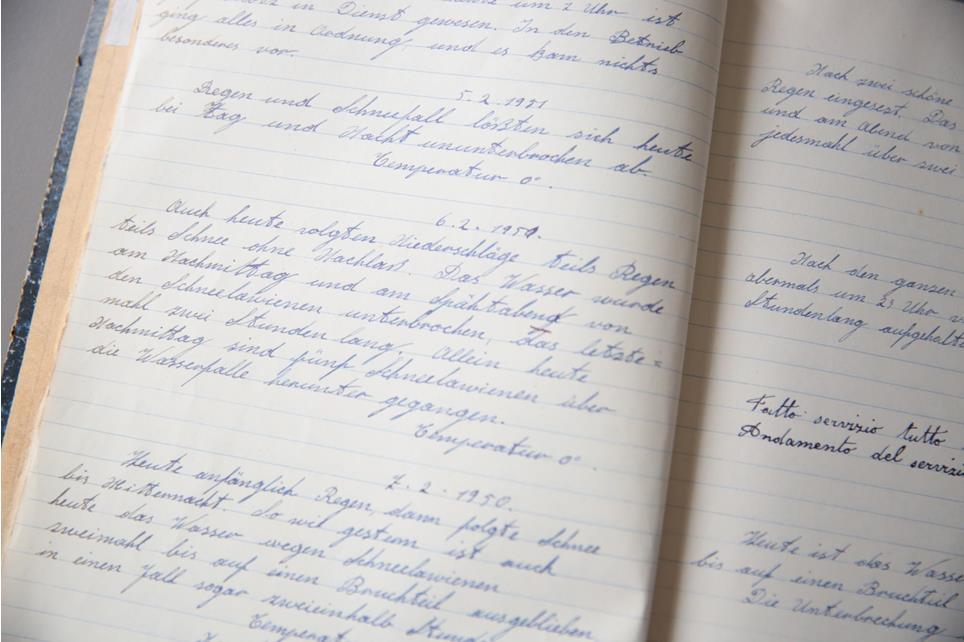 in Dienst gewesen. In den Betrieb
ging alles in Ordnung, und es kam nichts
besonderes vor.
5.2.1951
Regen und Schneefall lößten sich heute
bei Tag und Nacht ununterbrochen ab.
Temperatur 0°.
6.2.1951.
Auch heute rolgten Niederschläge teils Regen
teils Schnee ohne Nachlaß. Das Wasser wurde
am Nachmittag und am Spühtabend von
den Schneelawienen unterbrochen, das letzte=
mahl zwei Stunden lang. Allein heute
Nachmittag sind fünf Schneelawienen über
die Wasserfälle herunter gegangen.
Temperatur 0°.
7.2.1950.
Heute anfänglich Regen, dann folgte Schnee
bis Mitternacht. So wie gestern ist auch
heute das Wasser wegen Schneelawienen
zweimahl bis auf einen Bruchteil ausgeblieben
in einen Fall sogar zweieinhalb Stund
Temperat
Nach zwei schöne
Regen eingesezt. Das
und am Abend von
jedesmahl über zwei
Nach den ganzen
abermals um 23 Uhr
Stundenlang aufgehalte
Fatto servizio tutto
Andamento del servizio
Heute ist das Wasse
bis auf einen Bruchteil
Die Unterbrechung